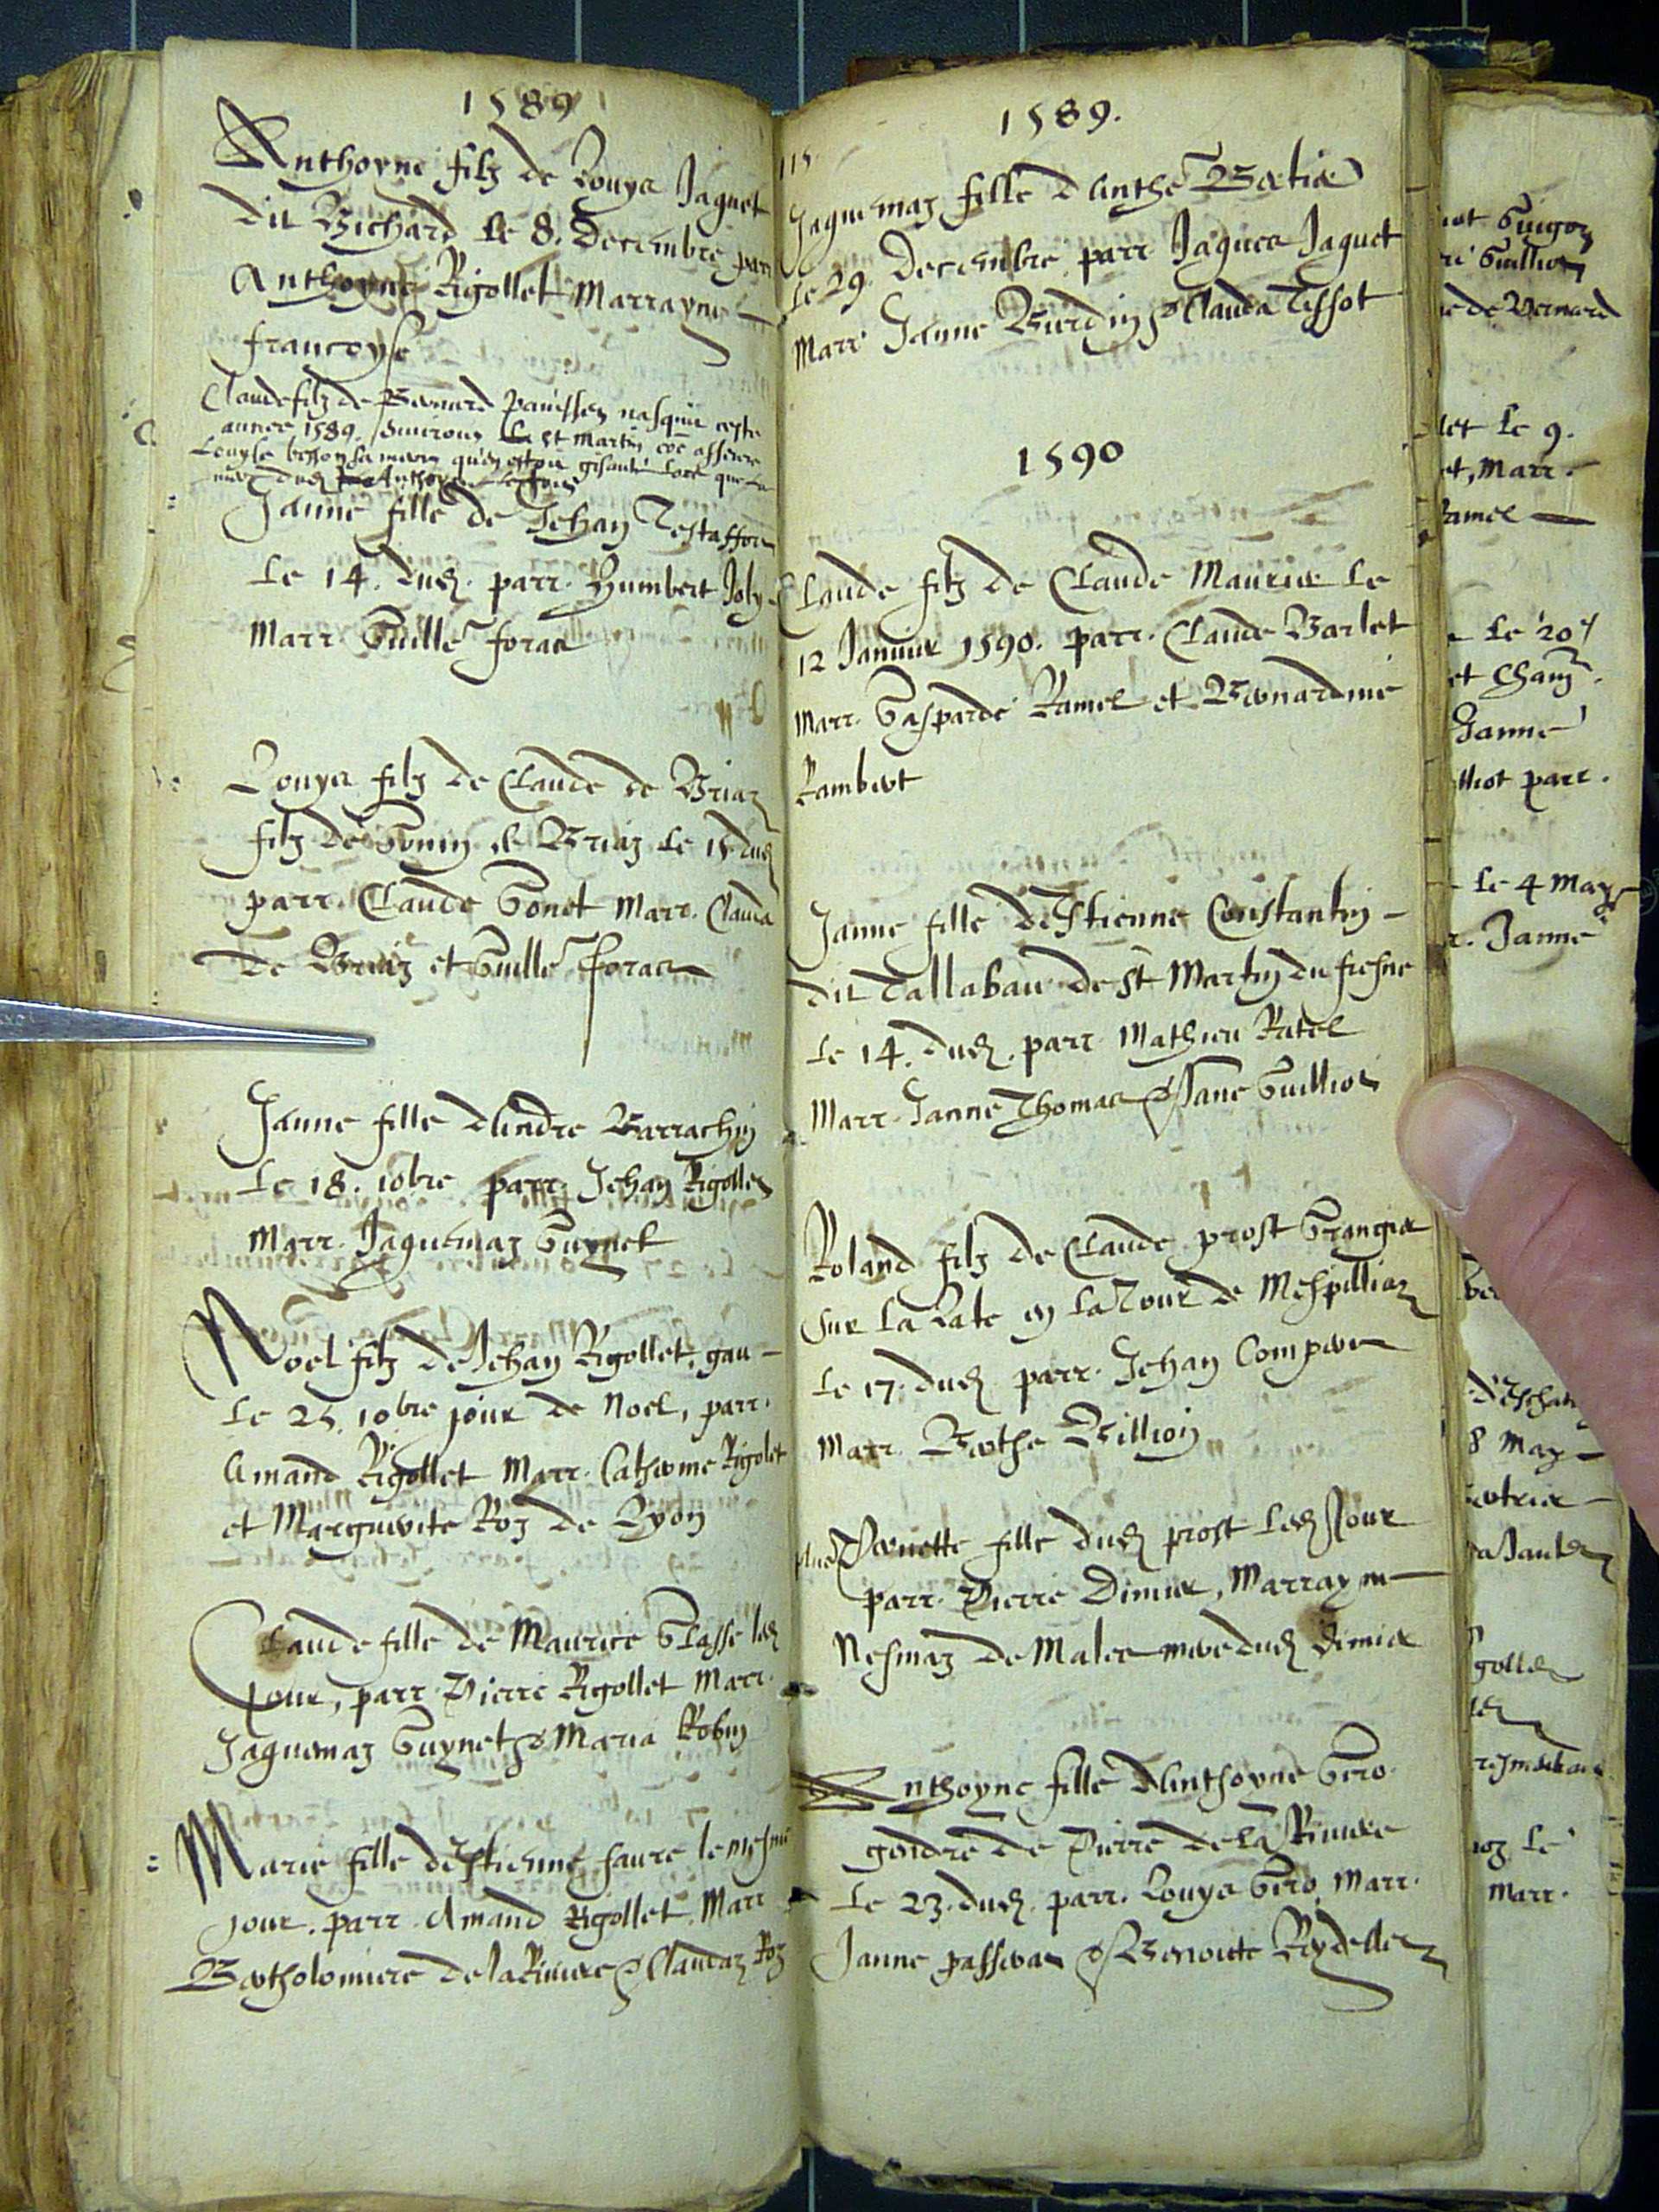 1589
Anthoyne filz de Louys Jaquet
dit Bichard le 8. Decembre parr
Anthoyne Rigollet Marrayne
francoyse
Claude filz de Bernard nasquit ceste
annee 1589. environ la st Martin coe asseure
Louyse besson sa mere qu'en estoit gisante lors que
Anthoyne
Janne fille de Jehan Testaffort
Le 14. dud. parr. Humbert Joly
Marr. Guille foras
Louys filz de Claude de Briaz
filz de Gonin de Briaz le 15 dud
parr. Claude Gonet Marr. Clauda
de Briaz et Guille foras
Janne fille d'Andre Barrachin
Le 18. 10bre parr. Jehan Rigollet
Marr. Jaquemaz Guynet
Noel filz de Jehan Rigollet, gau -
Le 25. 10bre jour de Noel, parr.
Amand Rigollet Marr. Catherine Rigolet
et Marguerite Roz de Lyon
Claude fille de Maurice Glasse led
Jour, parr. Pierre Rigollet Marr.
Jaquemaz Guynet & Maria Robin
Marie fille d'Estienne faure le mesme
jour. parr. Amand Rigollet. Marr
Bartholomiere de la Riviere & Claudaz Roz
1589.
115
Jaquemaz fille d'Anthe
Le 29. Decembre. parr. Jaques Jaquet
Marr. Janne Burdin & Clauda Tissot
1590
Claude filz de Claude Maurier Le
12 Janvier 1590. parr. Claude Barlet
Marr. Gasparde Ramel et Bernardine
Rambert
Janne fille d'Estienne Constantin -
dit Tallabau de st Martin du fresne
Le 14. dud. parr. Mathieu Ratel
Marr. Janne Thomas & Jane Guilliot
Roland filz de Claude prost Grangier
sur la en la Tour de Mespilliaz
Le 17. dud. parr. Jehan Comper
Marr. Berthe Billion
Pernette fille dud prost led Jour
parr. Pierre Dimier, Marrayne
Nesmaz de mere dud Dimier
Anthoyne fille d'Anthoyne Gero
gendre de Pierre de la Riviere
Le 23. dud. parr. Louys Gero, Marr.
Janne passerat & Benoicte Rydellet
Guigon
Guillion
de Bernard
Le 9.
et, Marr.
Ramel
Le 20
et
Janne
parr.
Le 4 May
r. Janne
8 May
Le
Marr.